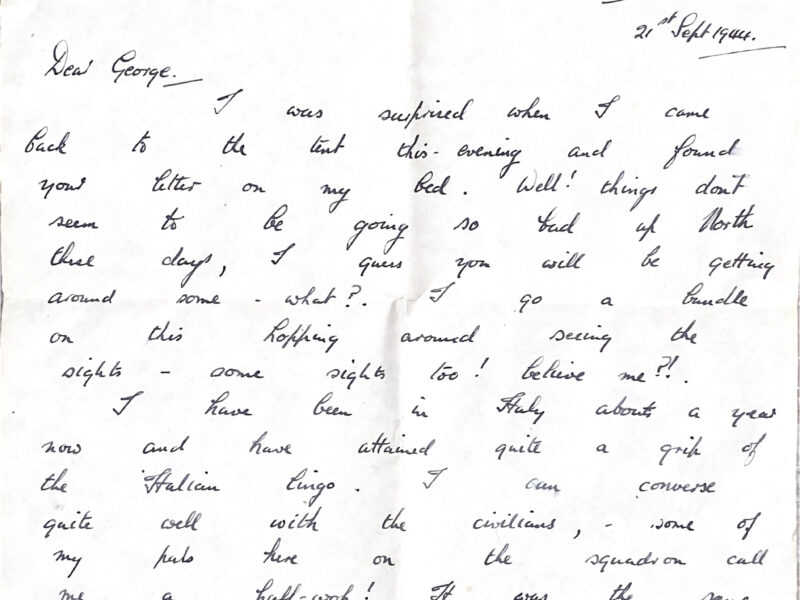 21st Sept 1944.
Dear George.
I was surprised when I came
back to the tent this evening and found
your letter on my bed. Well! things don't
seem to be going so bad up North
these days, I guess you will be getting
around some - what?. I go a bundle
on this hopping around seeing the
sights - some sights too! believe me?!.
I have been in Italy about a year
now and have attained quite a grip of
the Italian lingo. I can converse
quite well with the civilians, - some of
my pals here on the squadron call
me a half-wop! It was the same